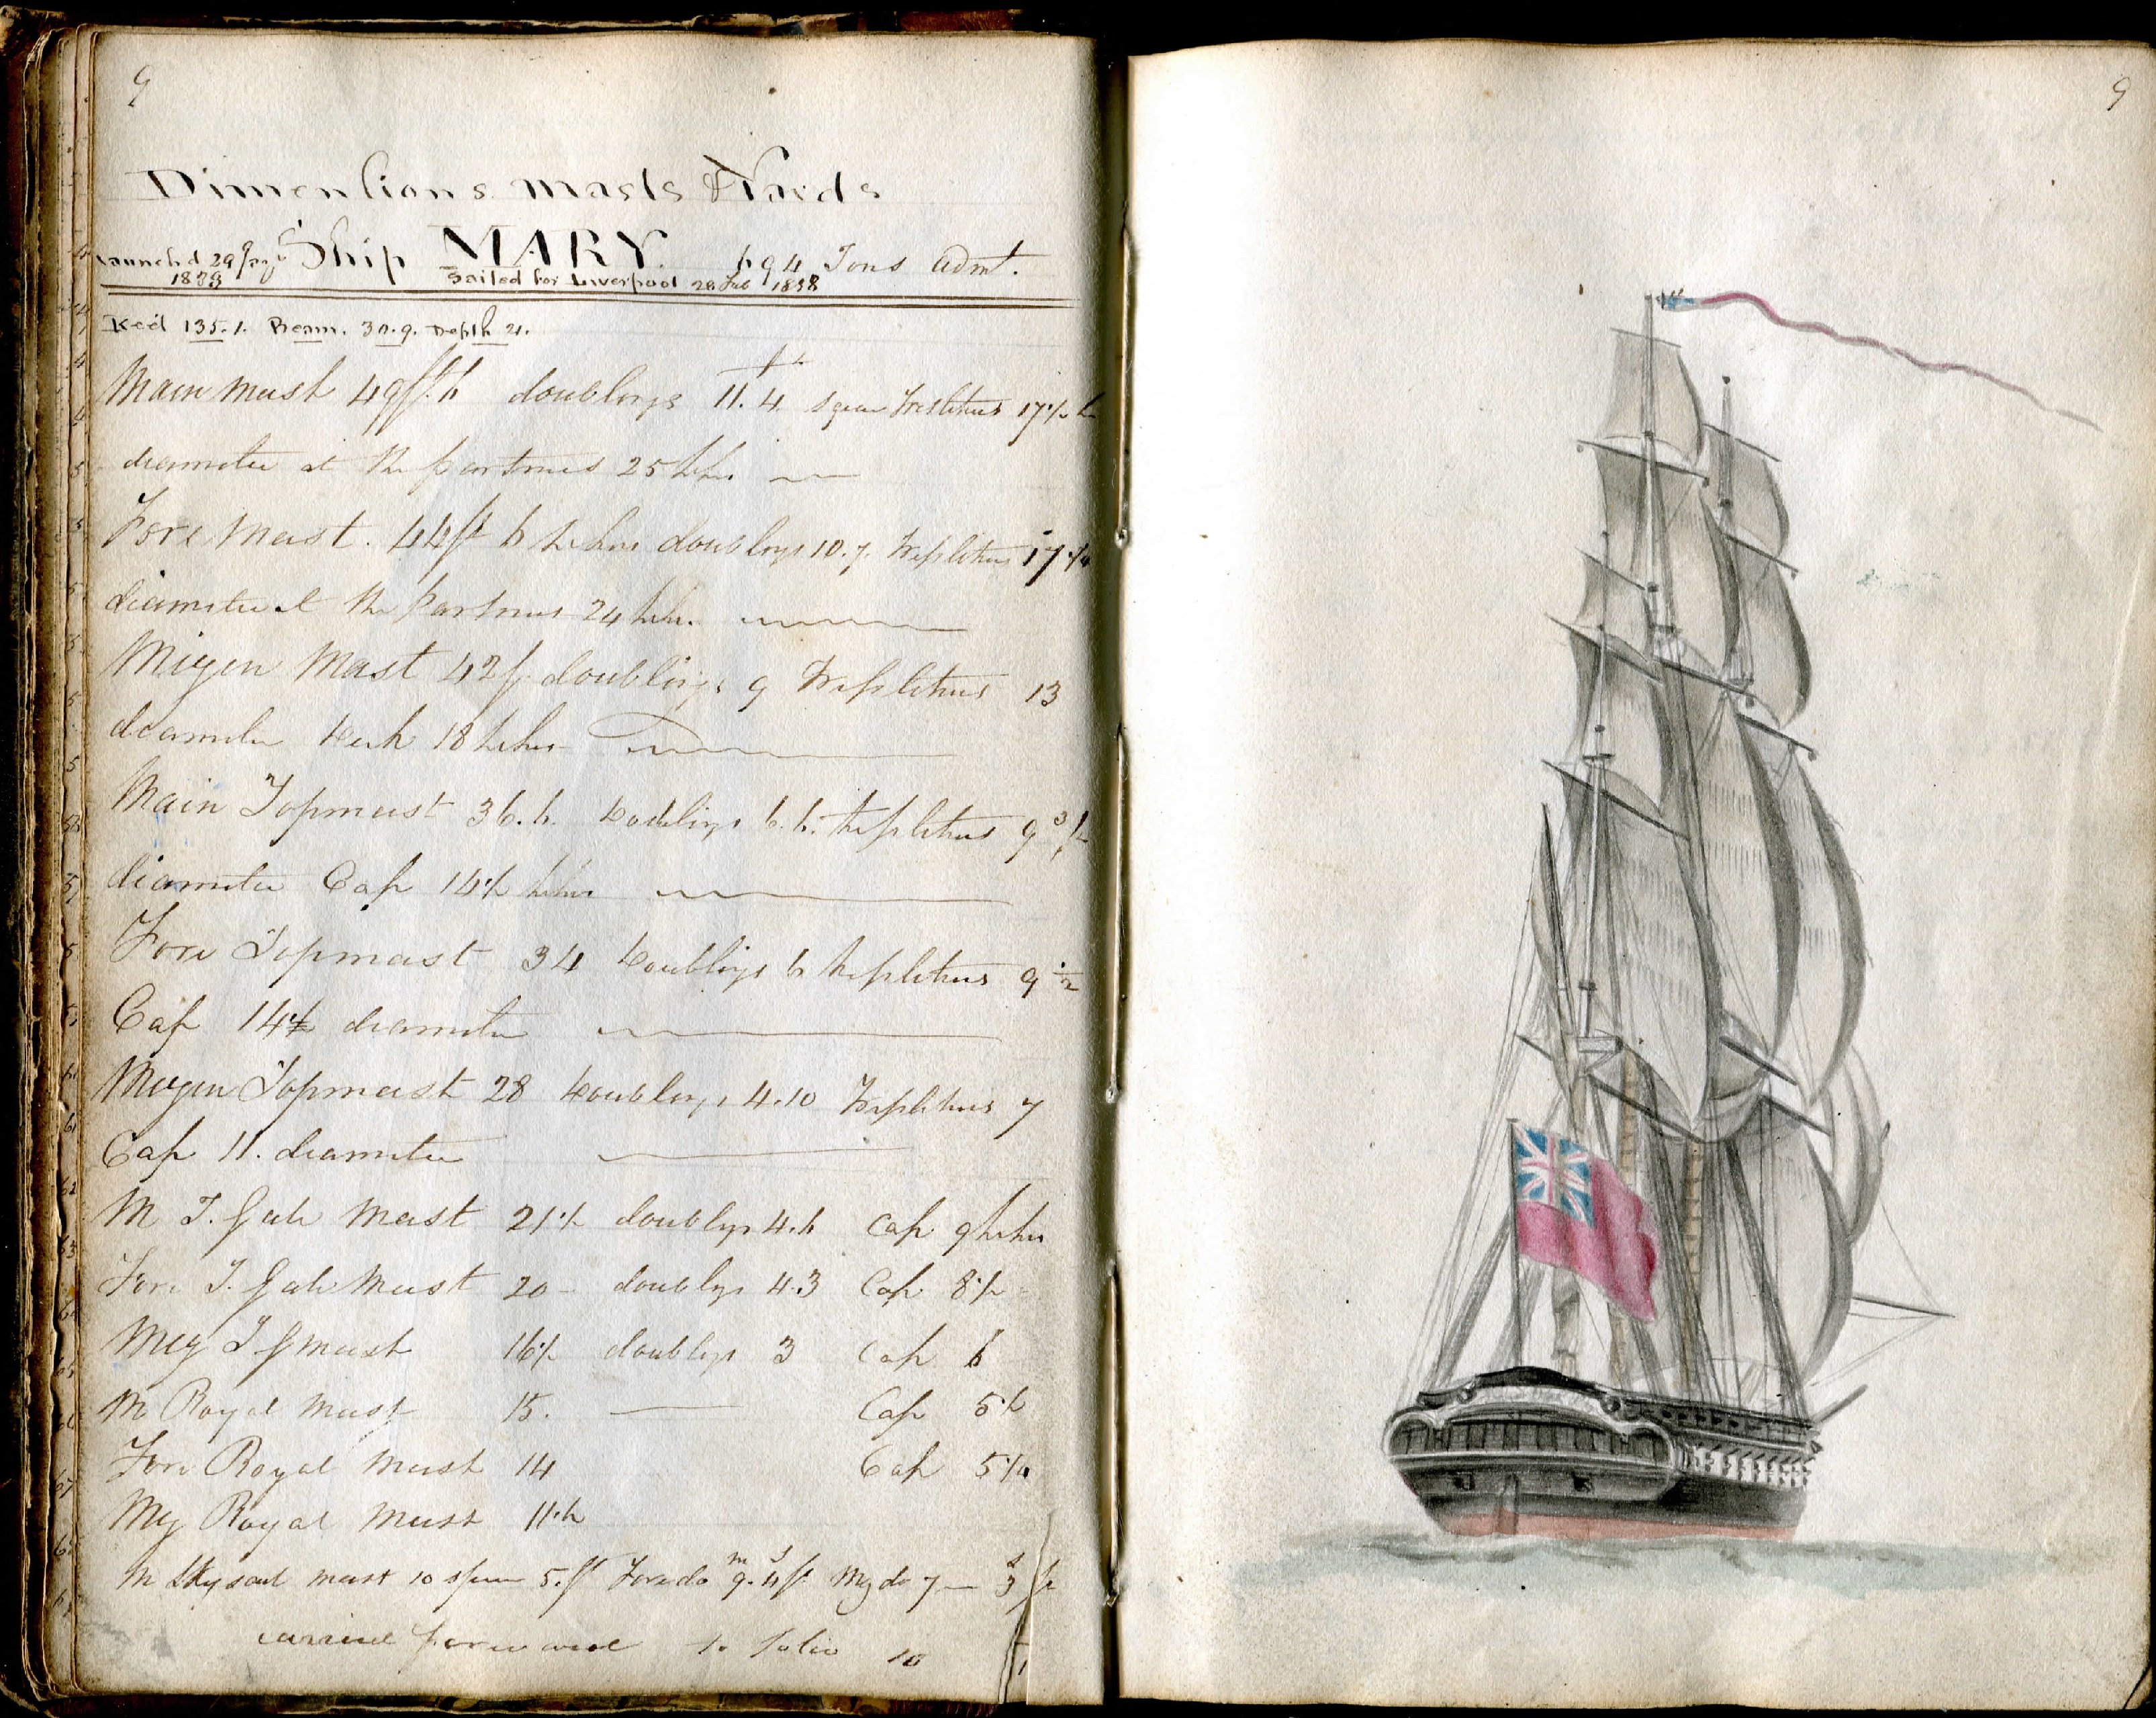 9
9
Dimentions Masts & Yards
Ship MARY. 694 Tons Adm't.
Launch'd 29
Sailed for Liverpool 28 Feb 1838
Keel 135.1. Beam. 30.9. Depth 21.
Main Mast 49 ft. 6 doublings 11.4 square Tresletrees 17½
diameter at the partners 25 Inches
Fore Mast. 44 ft 6 Inches doublings 10.7. Tresletrees 17¼
diameter at the partners 24 Inches
Mizen Mast 42 f. doublings 9 Tresletrees 13
diameter 18 Inches
Main Topmast 36.6. doublings 6.6. Tresletrees 9
diameter Cap 14½ Inches
Fore Topmast 34 doublings 6 Tresletrees 9 ½
Cap 14 diameter
Mizen Topmast 28 doublings 4.10 Tresletrees 7
Cap 11. diameter
M T. Gall Mast 21½ doublings 4.6 Cap 9 Inches
Fore T. Gall Mast 20 doublings 4.3 Cap 8½
Miz T G Mast 16½ doublings 3 Cap 6
M Royal Mast 15. Cap 5½
Fore Royal Mast 14 Cap 5¼
Miz Royal Mast 11.6
M Skysail mast 10 5. ft Fore do 9. 4 ft Miz do 7 3
carried forward to folio 10